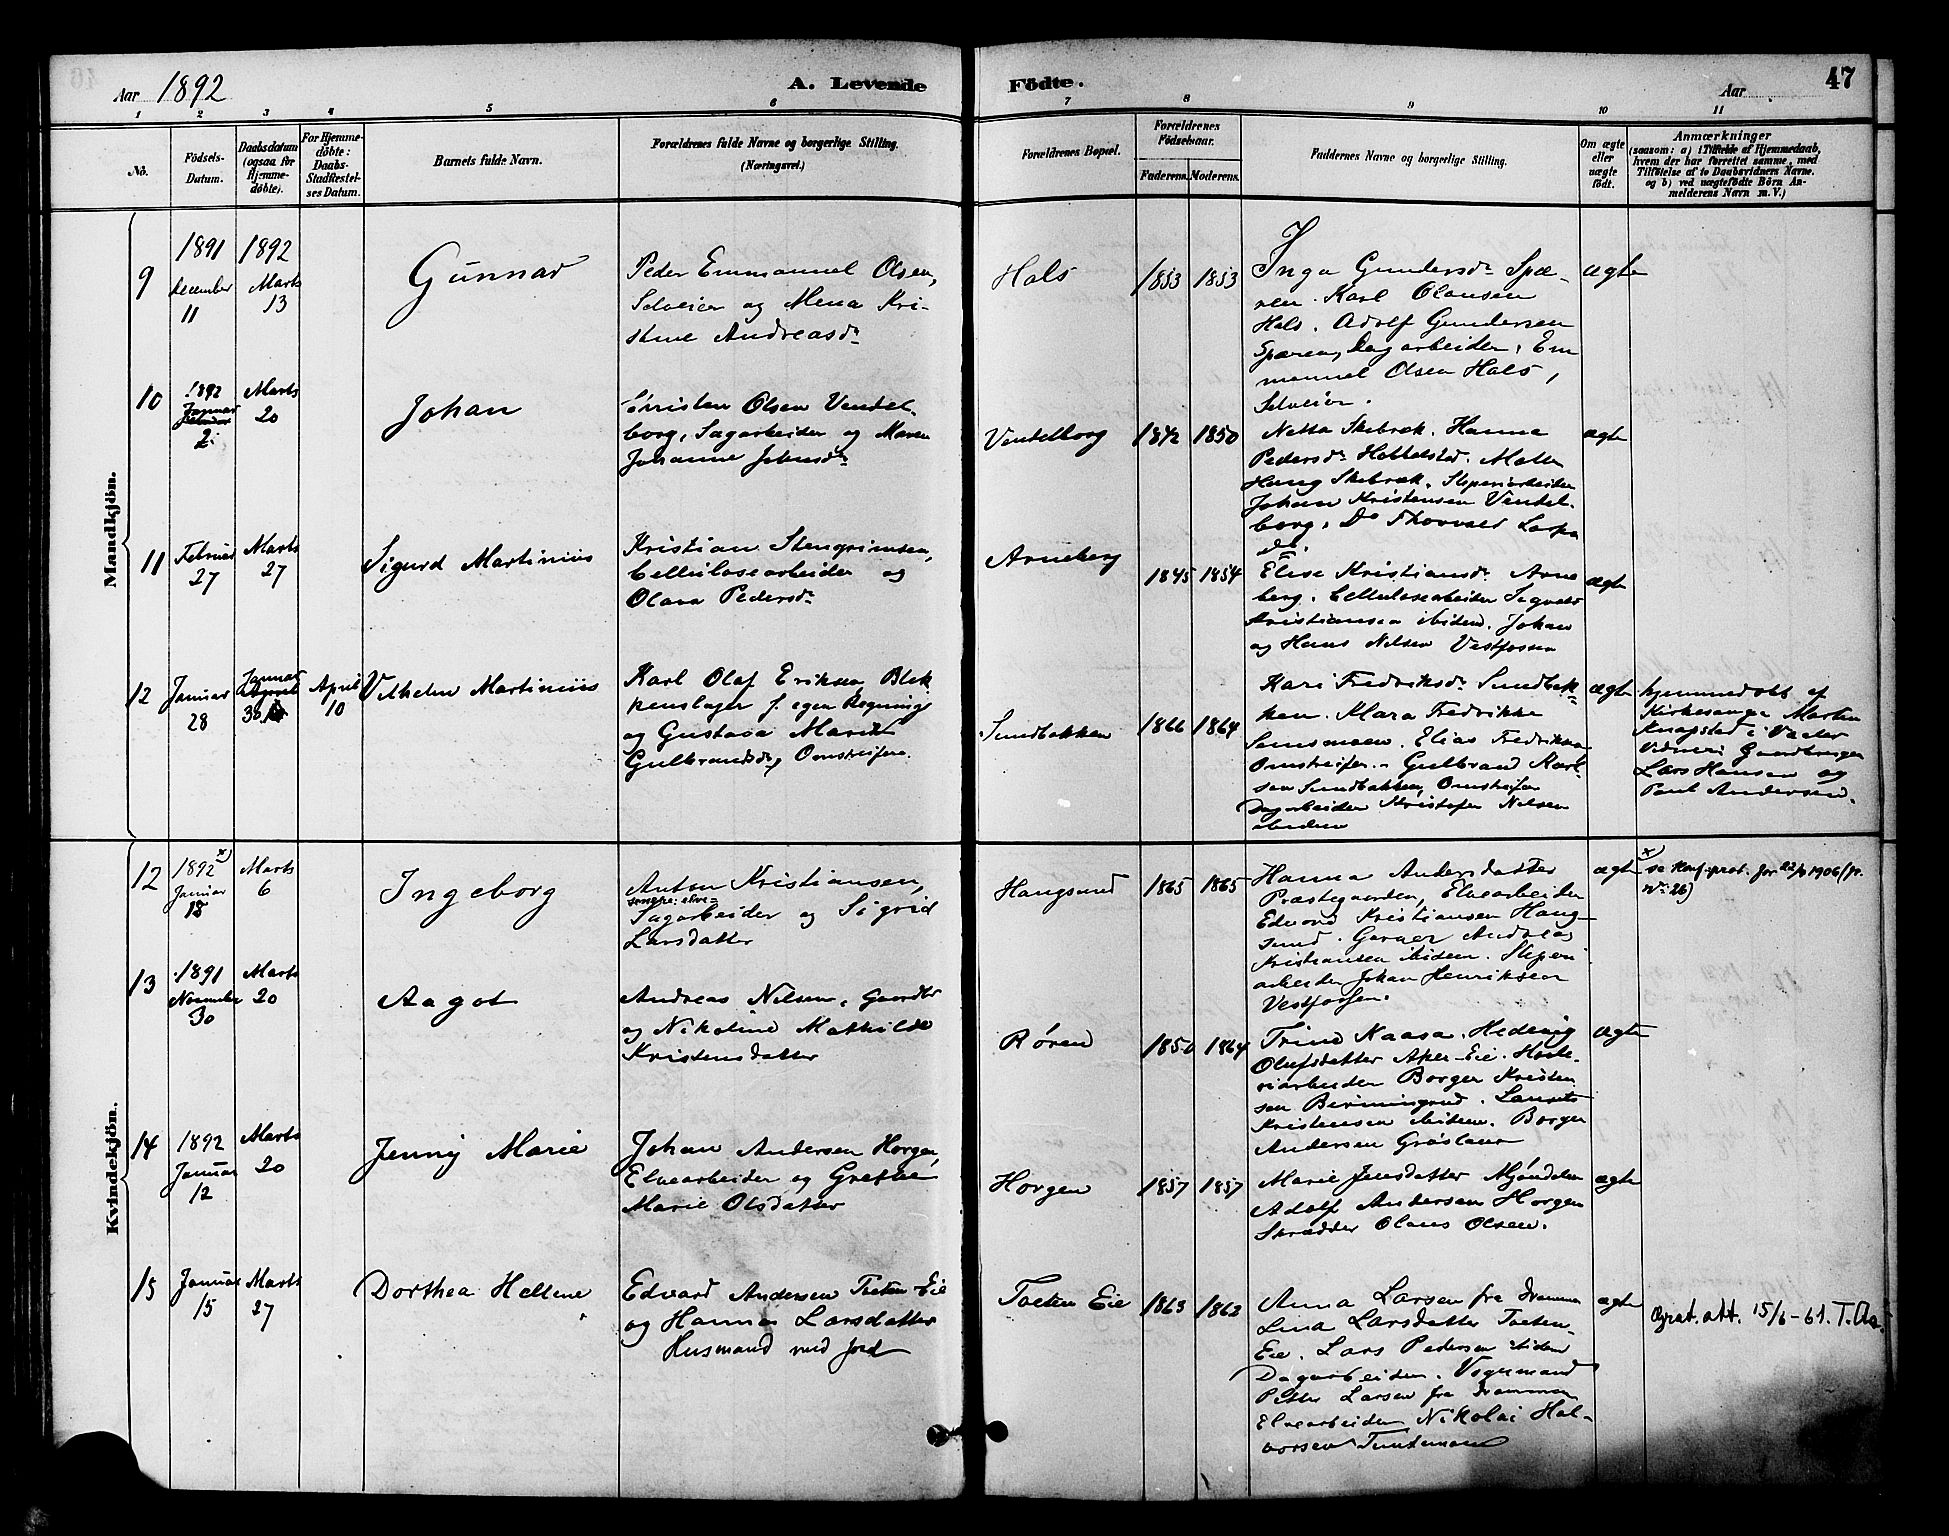 Aar 1892
A. Levende
Födte.
Aar
47
1 2 3 4 5 6 7 8 9 10 11
No.
Födsels-
Datum.
Daabsdatum
(ogsaa for
Hjemme-
døbte).
For Hjemme-
døbte:
Daabs-
Stadfæstel-
ses Datum.
Barnets fulde Navn.
Forældrenes fulde Navne og borgerlige Stilling.
(Næringsvei.)
Forældrenes Bopæl.
Forældrenes
Födselsaar.
Faderens. Moderens.
Faddernes Navne og borgerlige Stilling.
Om ægte
eller
uægte
født.
Anmærkninger
(saasom: a) i Tilfælde af Hjemmedaab,
hvem der har forrettet samme, med
Tilföielse af to Daabsvidners Navne.
og b) ved uægtefödte Börn An-
melderens Navn m. V.)
Mandkjön.
9
1891
December
11
1892
Marts
13
Gunnar
Peder Emmanuel Olsen,
Selveier og Mena Kri-
stine Andreasdr
Hals
1853 1853
Inga Gundersdr Spæ-
ren. Karl Olausen
Hals. Adolf Gundersen
Spæren, Dagarbeider, Em
manuel Olsen Hals,
Selveier.
ægte
10
1892
Januar
2
Marts
20
Johan
Christen Olsen Vendel-
borg, Sagarbeider og Maren
Johanne Johnsdr
Vendelborg
1842 1850
Netta Skibræk. Hanna
Pedersdr Hobbelstad.
Haug Skibræk. Sliperiarbeider
Johan Kristensen Vendel-
borg. Do Thorvald
ægte
11
Februar
27
Marts
27
Sigurd Martinius
Kristian Stengrimsen,
Cellulosearbeider og
Olava Pedersdr
Arneberg
1845 1854
Elise Kristiansdr Arne
berg. Cellulosearbeider Sigvald
Kristiansen ibidem. Johan
og Hans Nilsen Vestfossen
ægte
12
Januar
28
Januar
30
April
10
Vilhelm Martinius
Karl Olaf Eriksen Blik-
kenslager f. egen Regning
og Gustava Marie
Gulbrandsdr, Omstreifere.
Sundbakken
1866 1864
Kari Fredriksdr Sundbak-
ken. Mara Fredrikke
Sensmoen. Elias Fredriksen
Omstreifer. Gulbrand Karl-
sen Sundbakken, Omstreifer
Dagarbeider Kristofer Nilsen
ibidem
ægte
hjemmedøbt af
Kirkesanger Morten
Knapstad i
Vidner: Gaardbruger
Lars Hansen og
Paul Andersen.
Kvindekjön.
12
1892 x)
Januar
18
Marts
6
Ingeborg
Anton Kristiansen,
senere: elve-
Sagarbeider og Sigrid
Larsdatter
Haugsund
1865 1865
Hanna Andersdatter
Præstegaarden, Elvearbeider
Edvard Kristiansen Haug-
sund. Garver Andreas
Kristiansen ibidem. Sliperi
arbeider Johan Henriksen
Vestfossen.
ægte
x) se Konf.prot. for 1906 (p.
No 26)
13
1891
November
30
Marts
20
Aagot
Andreas Nilsen, Gaardbr
og Nikoline Mathilde
Kristensdatter
Røren
1850 1864
Trine Kaasa. Hedevig
Olufsdatter Aker-Eie.
arbeider Borger Kristen
sen Berminrud. Laurits
Kristensen ibidem. Borger
Andersen Grøsland
ægte
14
1892
Januar
12
Marts
20
Jenny Marie
Johan Andersen Horgen,
Elvearbeider og Grethe
Marie Olsdatter
Horgen
1857 1857
Marie Jensdatter Mjøndalen
Adolf Andersen Horgen
Skrædder Olaus Olsen.
ægte
15
Januar
15
Marts
27
Dorthea Hellene
Edvard Andersen Toeten-Eie
og Hanna Larsdatter
Husmand med Jord
Toeten Eie
1863 1862
Anna Larsen fra Drammen
Lina Larsdatter Toeten-
Eie. Lars Pedersen ibidem
Dagarbeider. Vognmand
Petter Larsen fra Drammen
Elvearbeider Nikolai Hal-
vorsen
ægte
Gratt. att. 15/6-61. T. Aa.